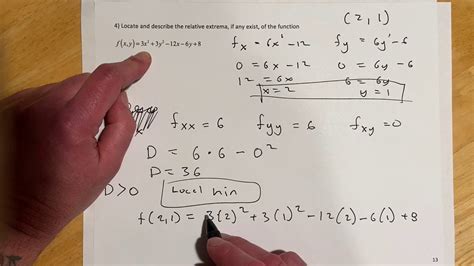 4) Locate and describe the relative extrema, if any exist, of the function
f(x,y)=3x²+3y²-12x-6y+8
(2,1)
fx = 6x' -12 fy = 6y' -6
0 = 6x -12 0 = 6y -6
12 = 6x 6 = 6y
x=2 y=1
fxx = 6 fyy = 6 fxy =0
D = 6·6 - 0²
D = 36
D>0 Local min
f(2,1) = 3(2)² +3(1)² -12(2) -6(1) +8
13